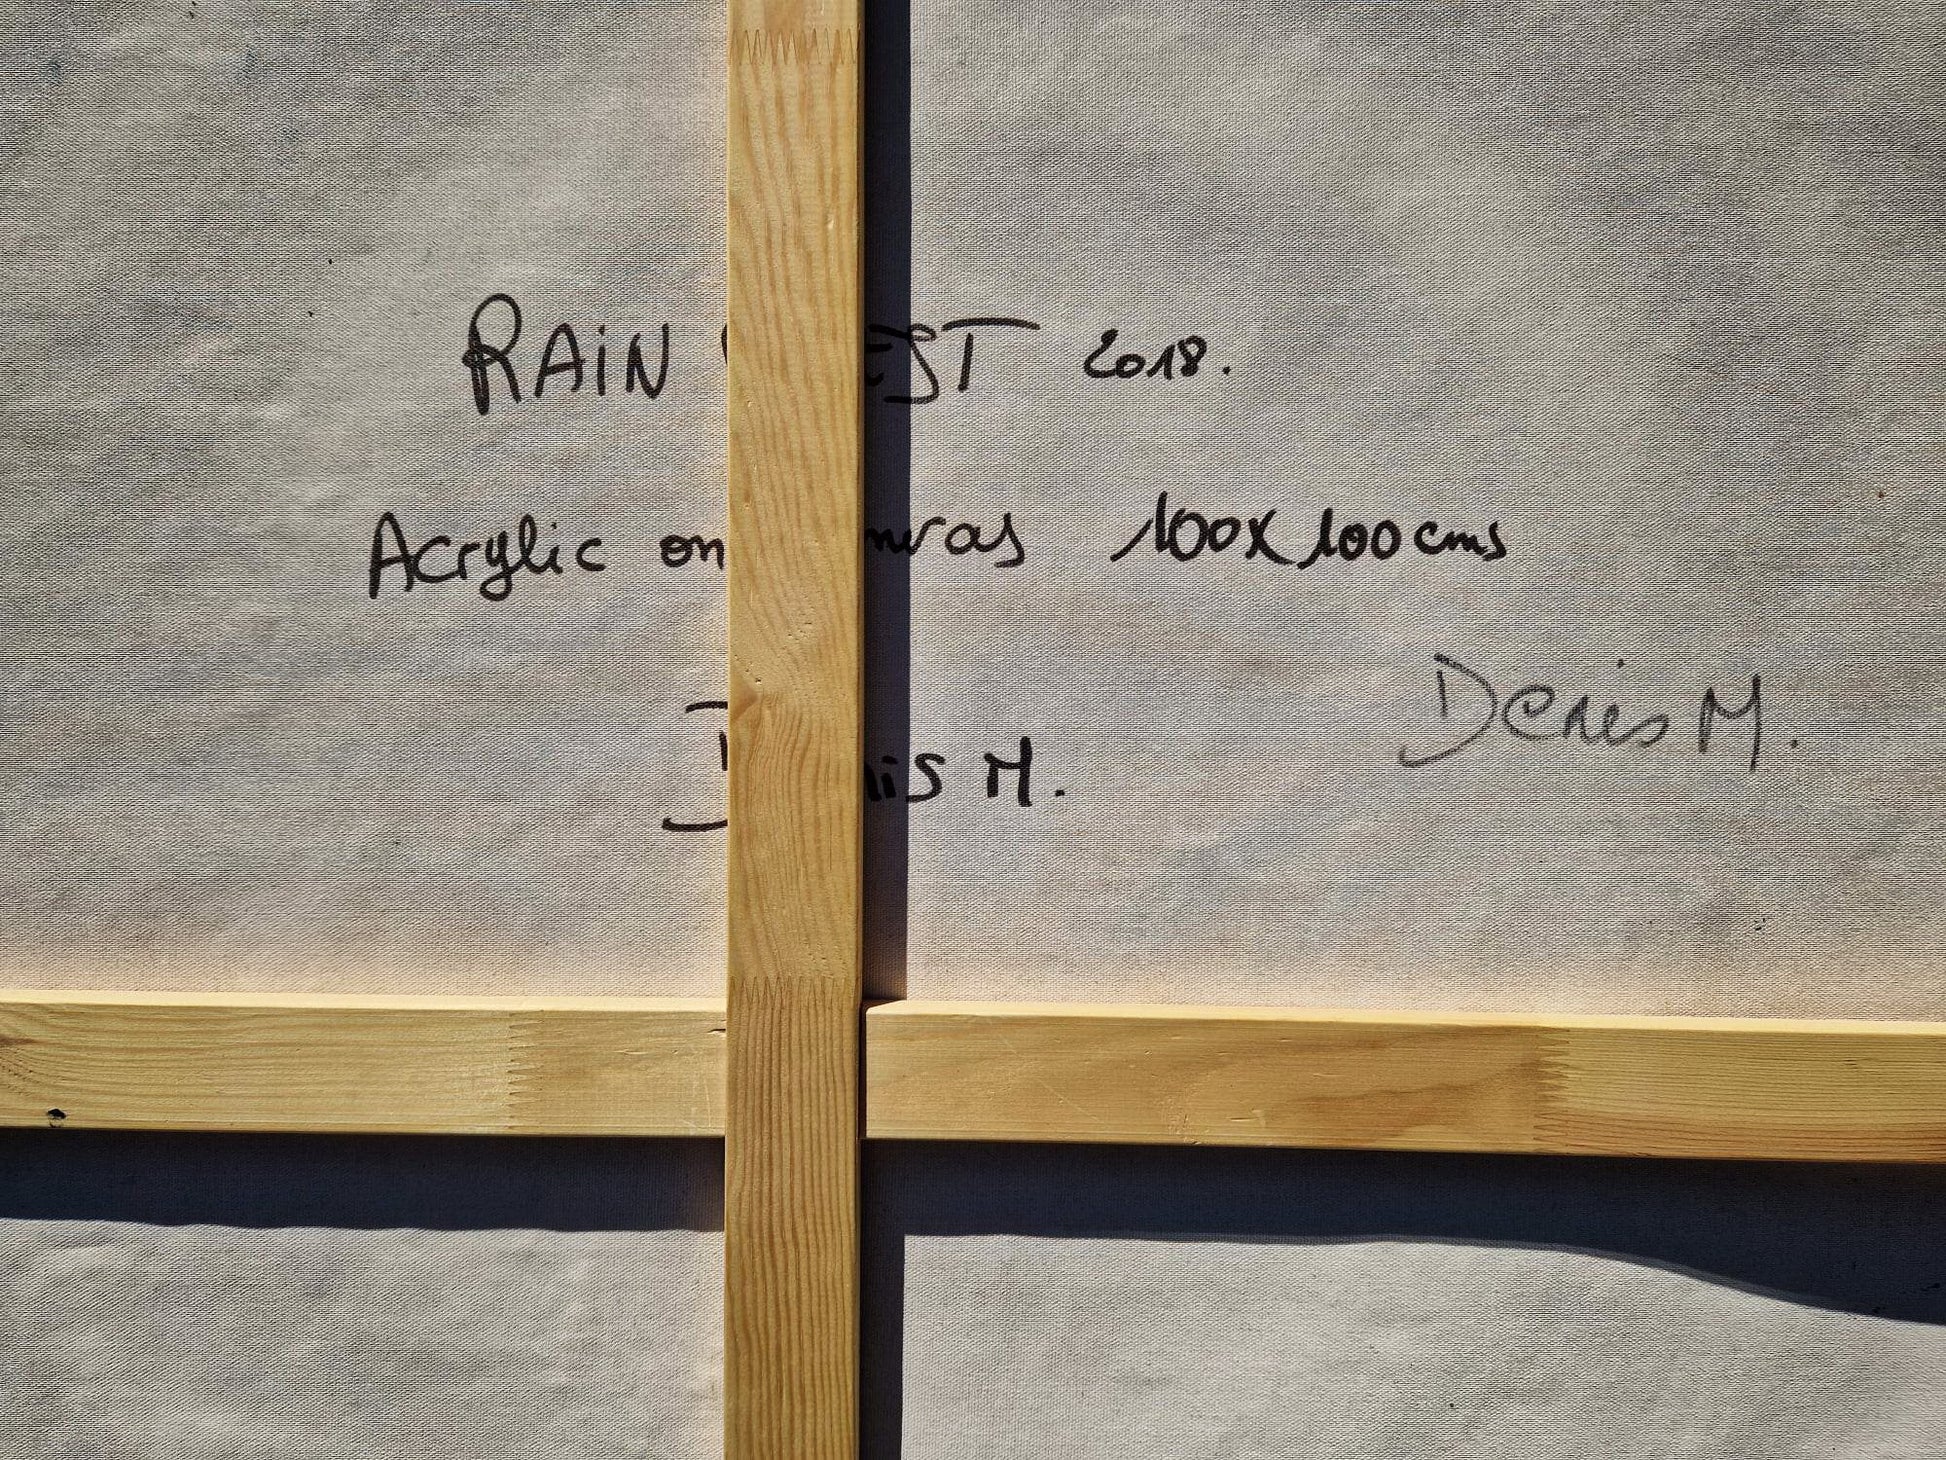 RAIN EST 2018.
Acrylic on canvas 100x100cms
Denis M.
Denis M.